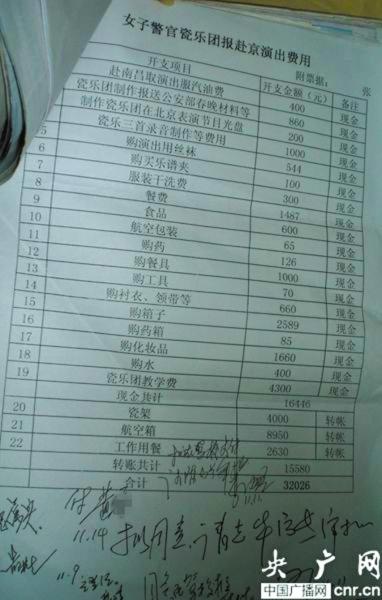 女子警官瓷乐团报赴京演出费用
附票据: 张
开支项目 开支金额(元) 备注
赴南昌取演出服汽油费 400 现金
瓷乐团制作报送公安部春晚材料等 860 现金
制作瓷乐团在北京表演节目光盘 200 现金
瓷乐三首录音制作等费用 1000 现金
5 购演出用丝袜 544 现金
6 购买乐谱夹 100 现金
7 服装干洗费 300 现金
8 餐费 1487 现金
9 食品 600 现金
10 航空包装 65 现金
11 购药 126 现金
12 购餐具 1000 现金
13 购工具 70 现金
14 购衬衣、领带等 660 现金
15 购箱子 2589 现金
16 购药箱 85 现金
17 购化妆品 1660 现金
18 购水 400 现金
瓷乐团教学费 4300 现金
现金共计 16446
20 瓷架 4000 转帐
21 航空箱 8950 转帐
22 工作用餐 2630 转帐
转账共计 15580
合计 32026
11.14
11.9
央广网
中国广播网 cnr.cn